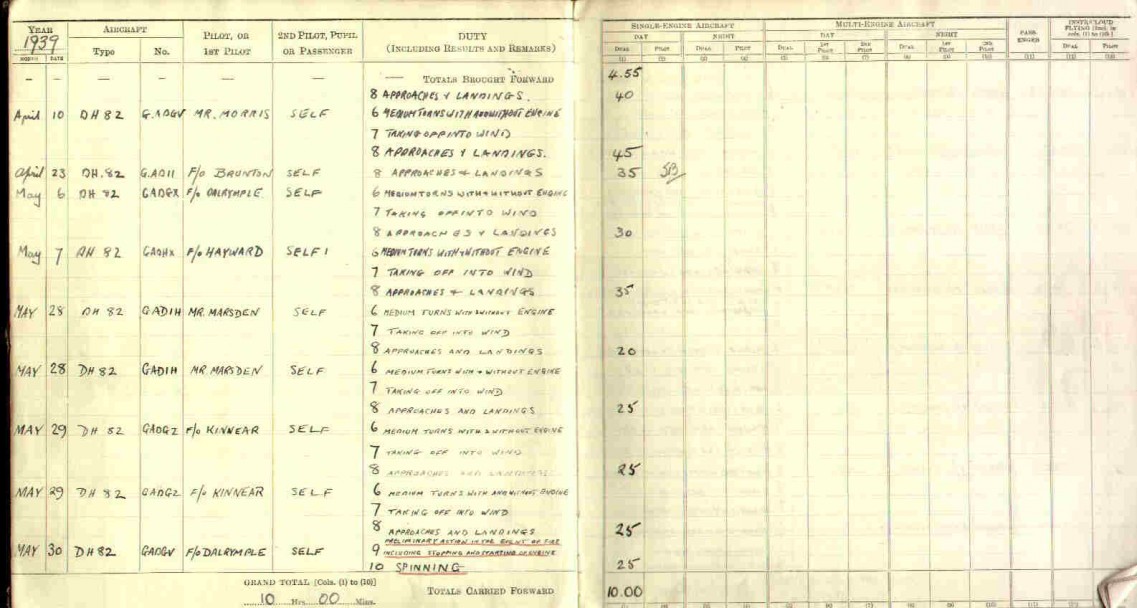 YEAR 1939 AIRCRAFT PILOT, OR 1ST PILOT 2ND PILOT, PUPIL OR PASSENGER DUTY (INCLUDING RESULTS AND REMARKS) SINGLE-ENGINE AIRCRAFT MULTI-ENGINE AIRCRAFT PASS-ENGER
MONTH DATE Type No. DAY NIGHT DAY NIGHT
DUAL PILOT DUAL PILOT DUAL 1ST PILOT 2ND PILOT DUAL 1ST PILOT 2ND PILOT DUAL PILOT
(1) (2) (3) (4) (5) (6) (7) (8) (9) (10) (11) (12) (13)
— — — — — — — TOTALS BROUGHT FORWARD 4.55
8 APPROACHES & LANDINGS. 40
April 10 DH 82 G.ADGV MR. MORRIS SELF 6 MEDIUM TURNS WITH AND WITHOUT ENGINE
7 TAKING OFF INTO WIND
8 APPROACHES & LANDINGS. 45
April 23 DH.82 G.ADII F/O BAUNTON SELF 8 APPROACHES & LANDINGS 35
May 6 DH 82 GADGX F/O DALRYMPLE SELF 6 MEDIUM TURNS WITH & WITHOUT ENGINE
7 TAKING OFF INTO WIND
8 APPROACHES & LANDINGS 30
May 7 DH 82 GADHX F/O HAYWARD SELF 1 6 MEDIUM TURNS WITH & WITHOUT ENGINE
7 TAKING OFF INTO WIND
8 APPROACHES & LANDINGS 35
MAY 28 DH 82 GADIH MR. MARSDEN SELF 6 MEDIUM TURNS WITH & WITHOUT ENGINE
7 TAKING OFF INTO WIND
8 APPROACHES AND LANDINGS 20
MAY 28 DH 82 GADIH MR MARSDEN SELF 6 MEDIUM TURNS WITH & WITHOUT ENGINE
7 TAKING OFF INTO WIND
8 APPROACHES AND LANDINGS 25
MAY 29 DH 82 GADGZ F/O KINNEAR SELF 6 MEDIUM TURNS WITH & WITHOUT ENGINE
7 TAKING OFF INTO WIND
8 APPROACHES AND LANDINGS 25
MAY 29 DH 82 GADGZ F/O KINNEAR SELF 6 MEDIUM TURNS WITH AND WITHOUT ENGINE
7 TAKING OFF INTO WIND
8 APPROACHES AND LANDINGS 25
PRELIMINARY ACTION IN THE EVENT OF FIRE
MAY 30 DH 82 GADGV F/O DALRYMPLE SELF 9 INCLUDING STOPPING AND STARTING OF ENGINE
10 SPINNING 25
GRAND TOTAL [Cols. (1) to (10)]
10 Hrs. 00 Mins. TOTALS CARRIED FORWARD 10.00